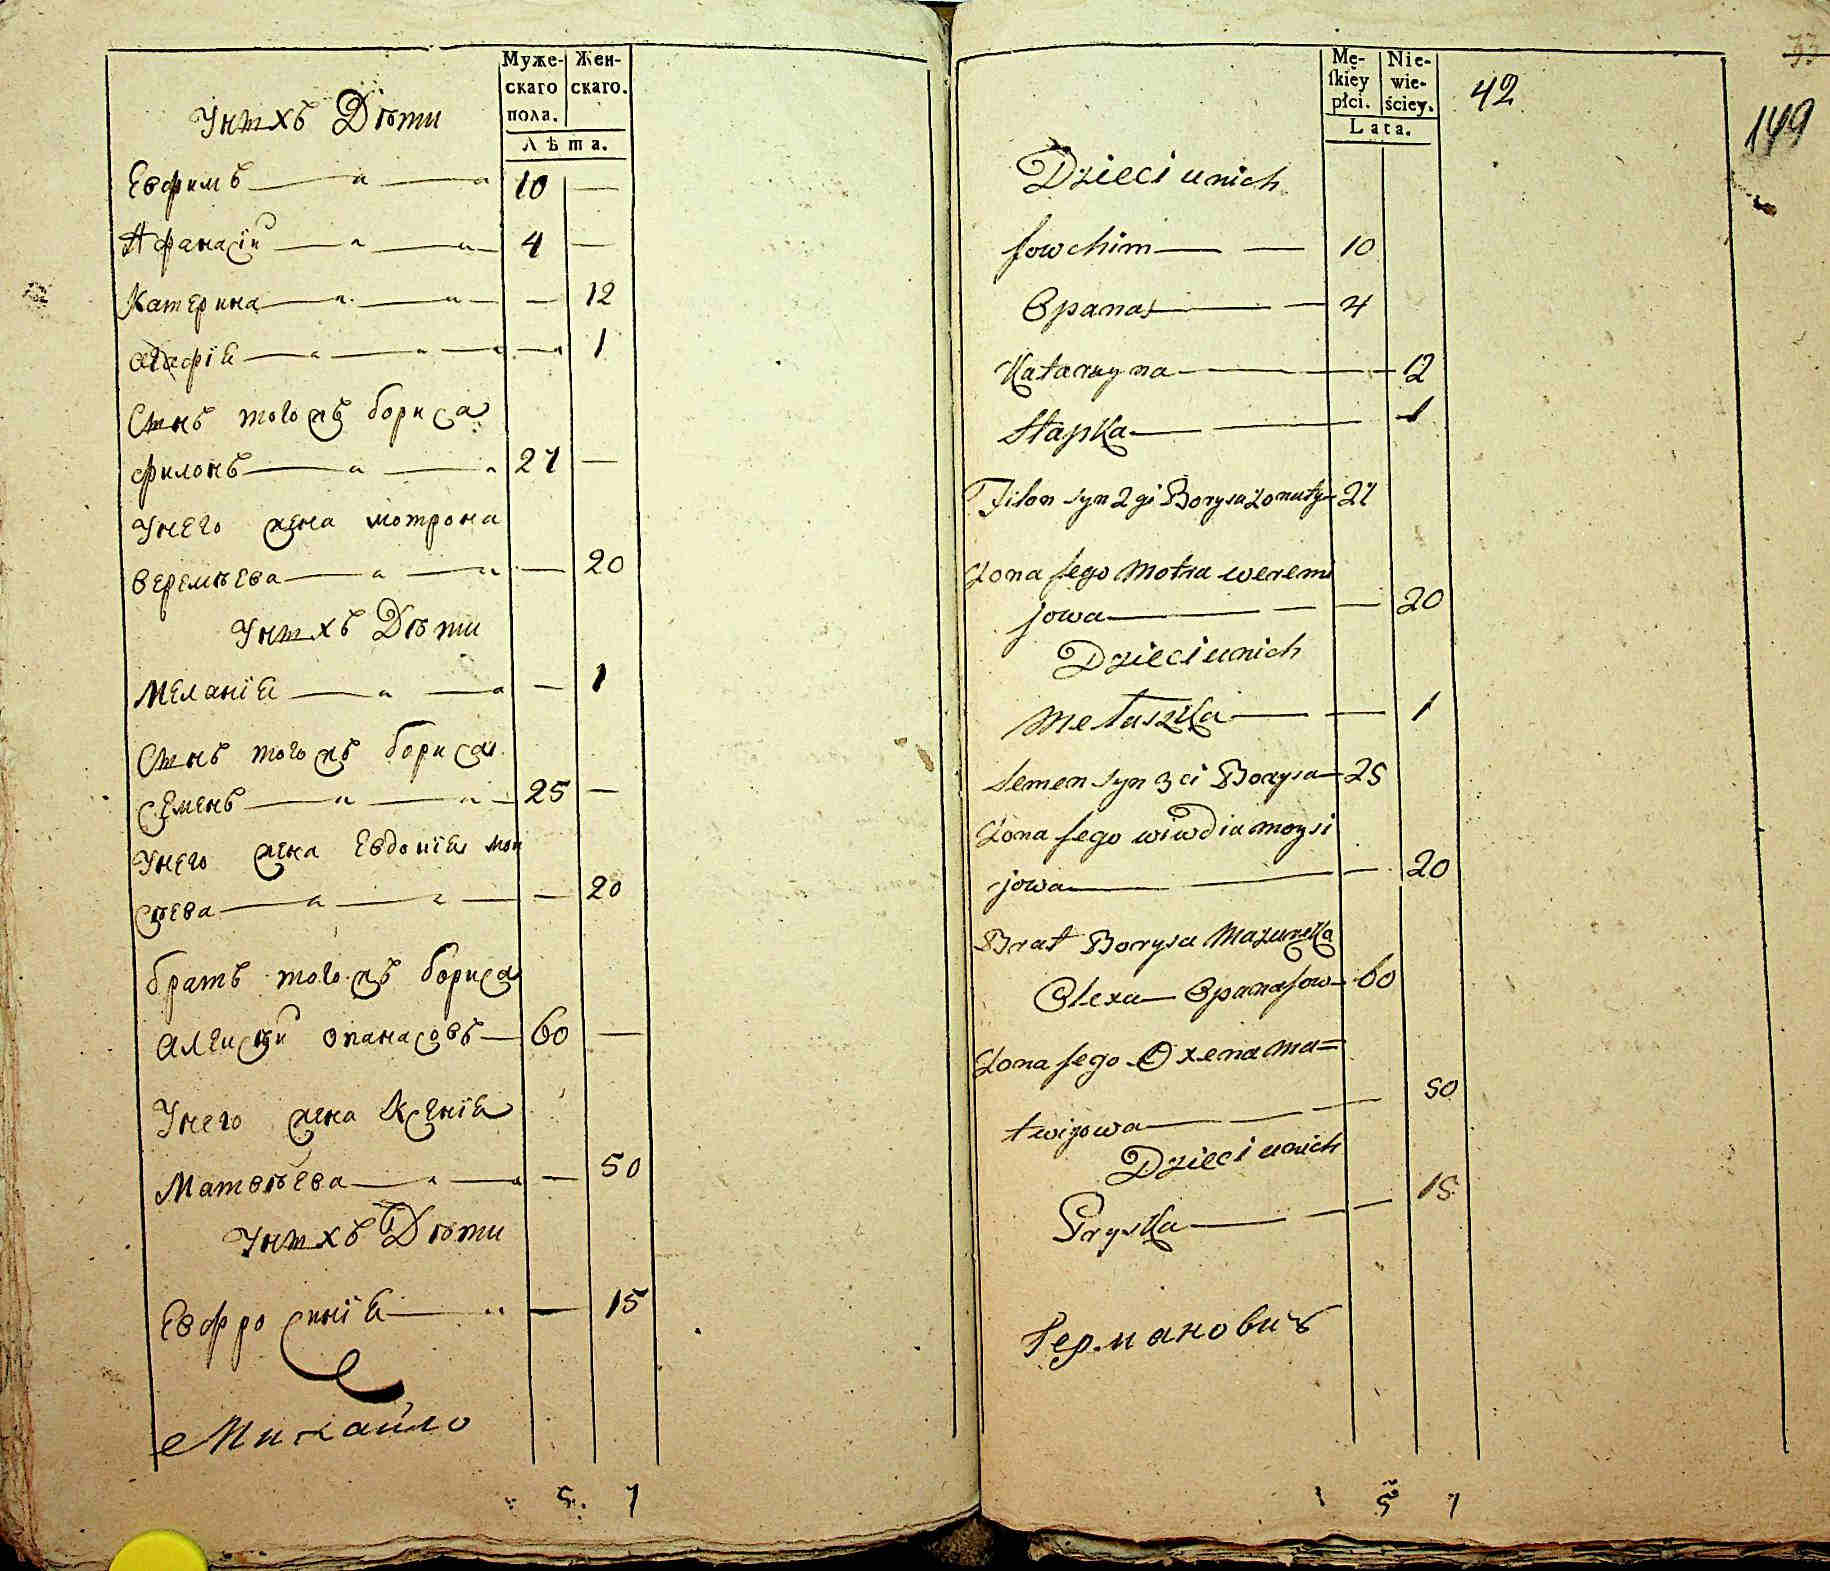 Муже-
скаго
пола.
Жен-
скаго.
Лѣта.
Унихъ Дѣти
Евфимъ 10
Афанасій 4
Катерина 12
Агафія 1
Сынъ тогожъ бориса
филонъ 27
Унего жена мотрона
веремѣева 20
Унихъ Дѣти
Меланія 1
Сынъ тогожъ бориса
семенъ 25
Унего жена Евдокія мои
сѣева 20
братъ тогожъ бориса
алексѣй опанасовъ 60
Унего жена Ксенія
Матвѣева 50
Унихъ Дѣти
Евфросинія 15
Михайло
5. 7
Mę-
skiéy
płci.
Nie-
wie-
ściey.
Lata.
42
33
149
Dzieci unich
Jowchim 10
Opanas 4
Katarzyna 12
Hapka 1
Filon syn 2gi Borysa żonaty 27
Żona Jego Motra weremi
jowa 20
Dzieci unich
Melaszka 1
Semen syn 3ci Borysa 25
Żona Jego wiwdia moysi
jowa 20
Brat Borysa Mazurka
Olexa Opanasow 60
Żona Jego Oxena Ma=
twijowa 50
Dzieci unich
Pryska 15
Германовичъ
1 5 7